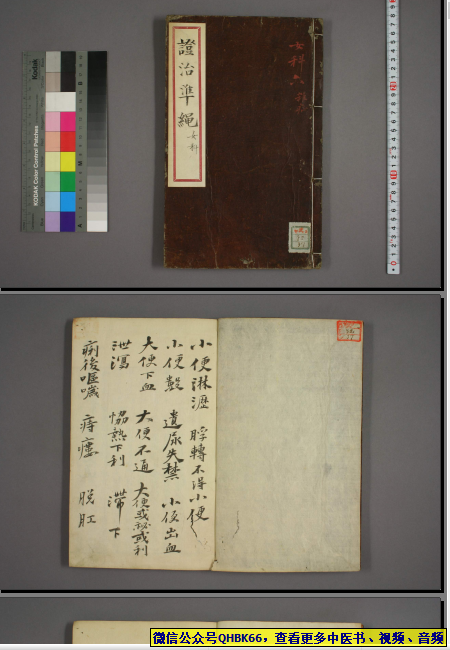 Kodak
KODAK Color Control Patches
證治準繩 女科
女科 六
小便淋瀝 脬轉不得小便
小便數 遺尿失禁 小便出血
大便下血 大便不通 大便或秘或利
泄瀉 協熱下利 滯下
痢後嘔噦 痔瘻 脫肛
微信公众号QHBK66，查看更多中医书、视频、音频